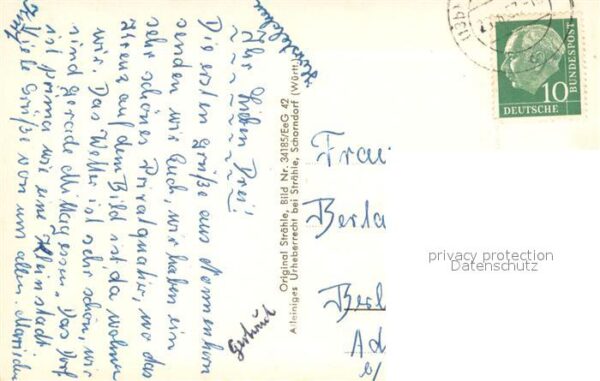 Ihr Lieben Drei!
Die ersten Grüße aus Nonnenhorn
senden wir Euch, wir haben ein
sehr schönes Privatquatier, wo das
Kreuz auf dem Bild ist, da wohnen
wir. Das Wetter ist sehr schön, wir
sind gerade Mittagessen. Das Dorf
ist prima wie eine Kleinstadt
Viele Grüße von uns allen.
Original Strähle, Bild Nr. 34185/EeG 42
Alleiniges Urheberrecht bei Strähle, Schorndorf (Württ.)
Frau
Berta
Berl
Ad
DEUTSCHE
BUNDESPOST
10
privacy protection
Datenschutz